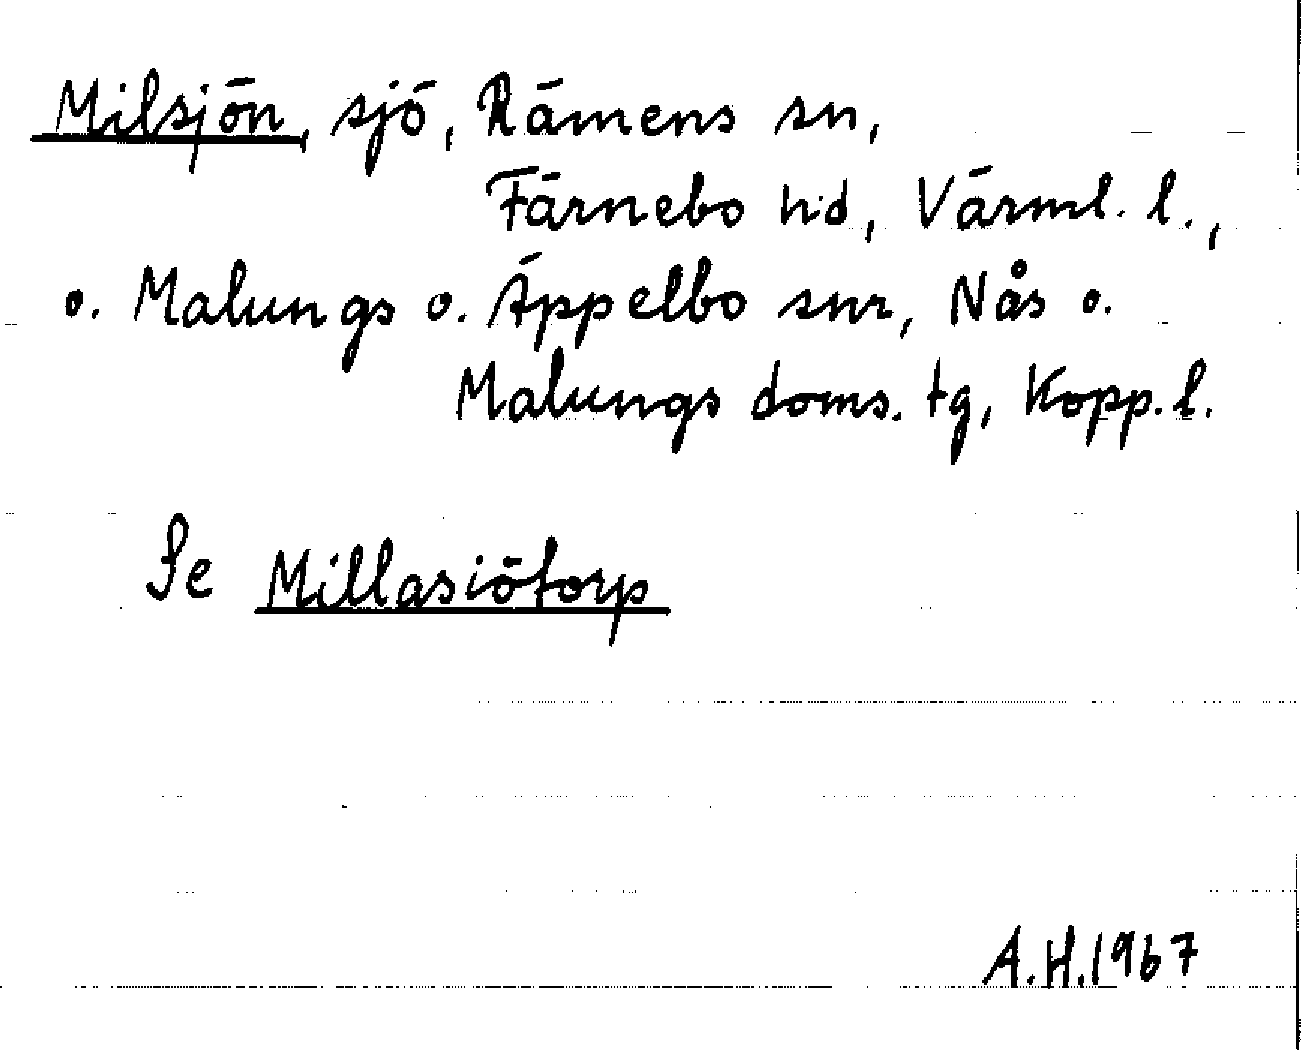 Milsjön, sjö, Rämens sn,
Färnebo hd, Värml. l.,
o. Malungs o. Äppelbo snr, Nås o.
Malungs doms. tg, Kopp. l.
Se Millasiötorp
A.H. 1967